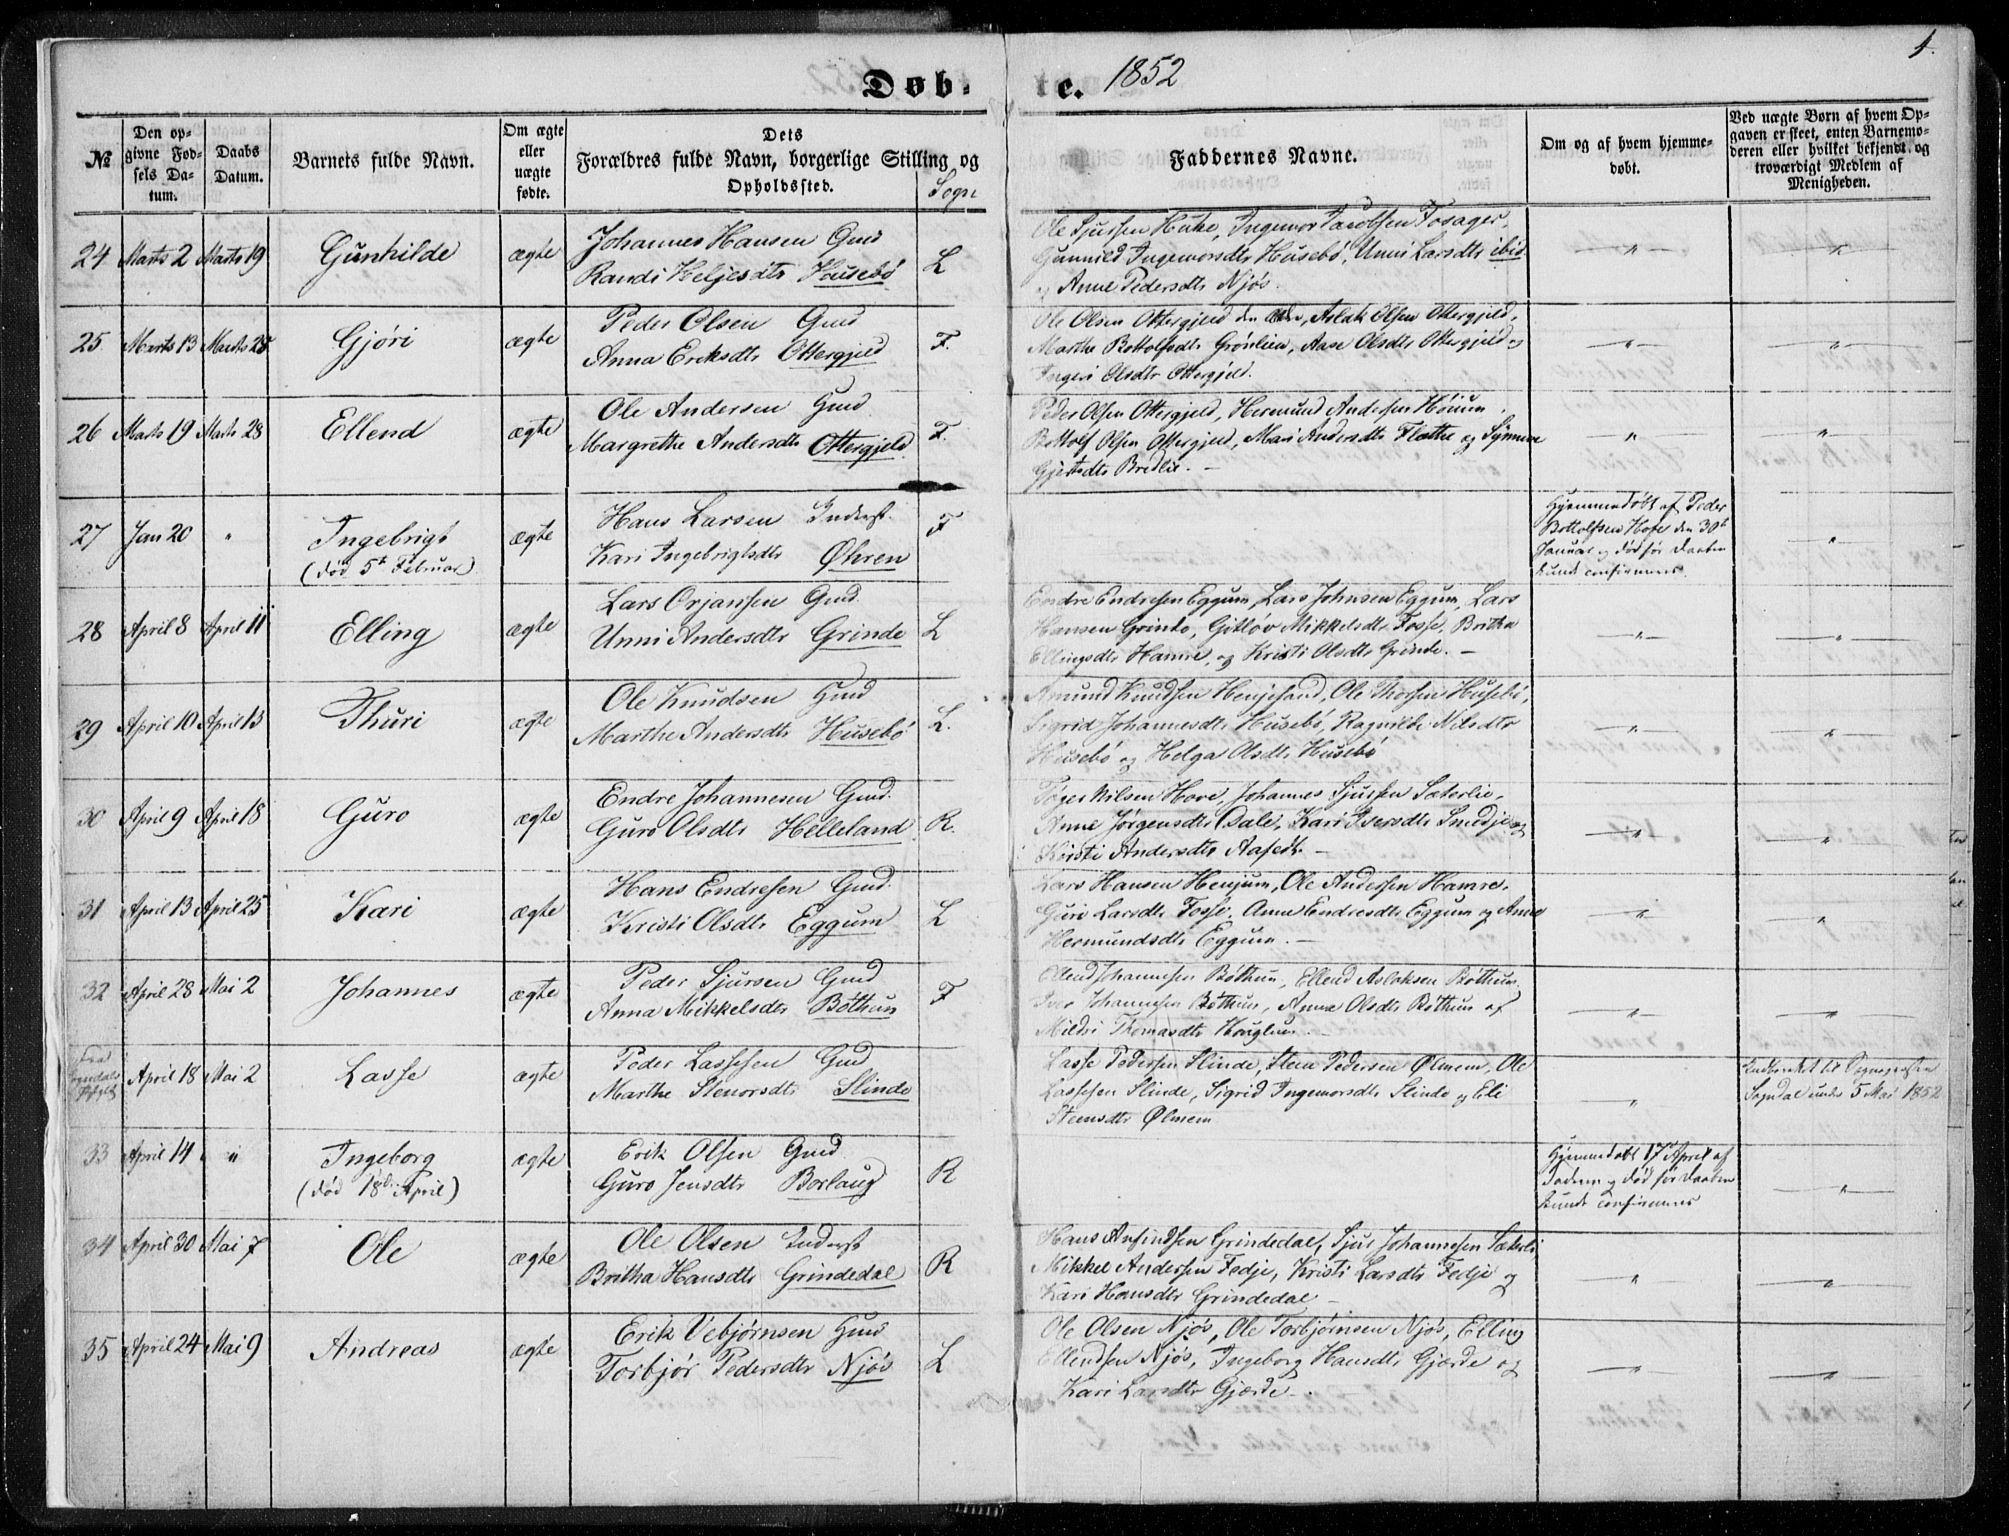 1.
Døb-te. 1852
№
Den opgivne Fødsels Datum.
Daabs Datum.
Barnets fulde Navn.
Om ægte eller uægte fødte.
Dets Forældres fulde Navn, borgerlige Stilling og Opholdssted.
Sogn
Faddernes Navne.
Om og af hvem hjemmedøbt.
Ved uægte Børn af hvem Opgaven er skeet, enten Barnemoderen eller hvilket bekjendt og troværdigt Medlem af Menigheden.
24 Marts 2 Marts 19 Gunhilde ægte Johannes Hansen Gmd
Randi Heljesdtr Husebö L
Ole Sjursen Huke, Ingemor Jacobsen Fosager,
Gunnild Ingemorsdtr Husebö, Unni Larsdtr ibid
og Anne Pedersdtr Njös.
25 Marts 13 Marts 25 Gjøri ægte Peder Olsen Gmd
Anna Eriksdtr Ottergjeld F.
Ole Olsen Ottergjeld den, Aslak Olsen Ottergjeld,
Marthe Bottolfsdtr Grönlien, Aase Olsdtr Ottergjeld og
Ingeri Olsdtr Ottergjeld.
26 Marts 19 Marts 28 Ellend ægte Ole Andersen Gmd
Margrethe Andersdtr Ottergjeld F.
Peder Olsen Ottergjeld, Hermund Andersen Höium,
Bottolf Olsen Ottergjeld, Mari Andersdtr Flathe og Synneve
Gjertsdtr Bredlie. —
27 Jan 20 " Ingebrigt
(død 5te Februar) ægte Hans Larsen Inderst.
Kari Ingebrigtsdtr Øhren F
Hjemmedöbt af Peder
Bottolfsen Hofe den 30te
Januar og död för Daaben
kunde confirmeres.
28 April 8 April 11 Elling ægte Lars Orjansen Gmd.
Unni Andersdtr Grinde L
Endre Endresen Eggum, Lars Johnsen Eggum, Lars
Hansen Grinde, Gitlöv Mikkelsdtr Fosse, Britha
Ellingsdtr Hamre, og Kristi Olsdtr Grinde. —
29 April 10 April 13 Thuri ægte Ole Knudsen Gmd
Marthe Andersdtr Husebö L.
Amund Knudsen Henjesand, Ole Thorsen Husebö,
Sigrid Johannesdtr Husebö, Ragnilde Nilsdtr
Husebö og Helga Olsdtr Husebö
30 April 9 April 18 Guro ægte Endre Johannesen Gmd.
Guro Olsdtr Helleland R.
Töger Nilsen Hove, Johannes Sjursen Sæterlie,
Anne Jörgensdtr Dale, Kari Iversdtr Smedje og
Kirsti Andersdtr Aafedt. —
31 April 13 April 25 Kari ægte Hans Endresen Gmd.
Kristi Olsdtr Eggum L
Lars Hansen Henjum, Ole Andersen Hamre,
Guri Larsdtr Fosse, Anne Endresdtr Eggum og Anna
Hermundsdtr Eggum. —
32 April 28 Mai 2 Johannes ægte Peder Sjursen Gmd
Anna Mikkelsdtr Böthun F
Ellend Johannesen Böthun, Ellend Aslaksen Böthun
Iver Johannesen Böthun, Anna Olsdtr Böthun og
Mildri Thomasdtr Houglum. —
Fra
Sogndals April 18 Mai 2 Lasse ægte Peder Lassesen Gmd
Marthe Stenorsdtr Slinde
Lasse Pedersen Slinde, Steen Pedersen Ølmem, Ole
Lassesen Slinde, Sigrid Ingemorsdtr Slinde og Eli
Steensdtr Ølmem
Sogndal under 5 Mai 1852
33 April 14 " Ingeborg
(død 18de April) ægte Erik Olsen Gmd
Guro Jensdtr Borlaug R
Hjemmedöbt 17 April af
Faderen og död för Daaben
kunde confirmeres
34 April 30 Mai 7 Ole ægte Ole Olsen Inderst
Britha Hansdtr Grindedal R
Hans Anfindsen Grindedal, Sjur Johannesen Sæterli
Mikkel Andersen Fedje, Kristi Larsdtr Fedje og
Kari Hansdtr Grindedal —
35 April 24 Mai 9 Andreas ægte Erik Vebjørnsen Gmd
Torbjör Pedersdtr Njös L
Ole Olsen Njös, Ole Torbjörnsen Njös, Elling
Ellendsen Njös, Ingeborg Hansdtr Gjærde og
Kari Larsdtr Gjærde.